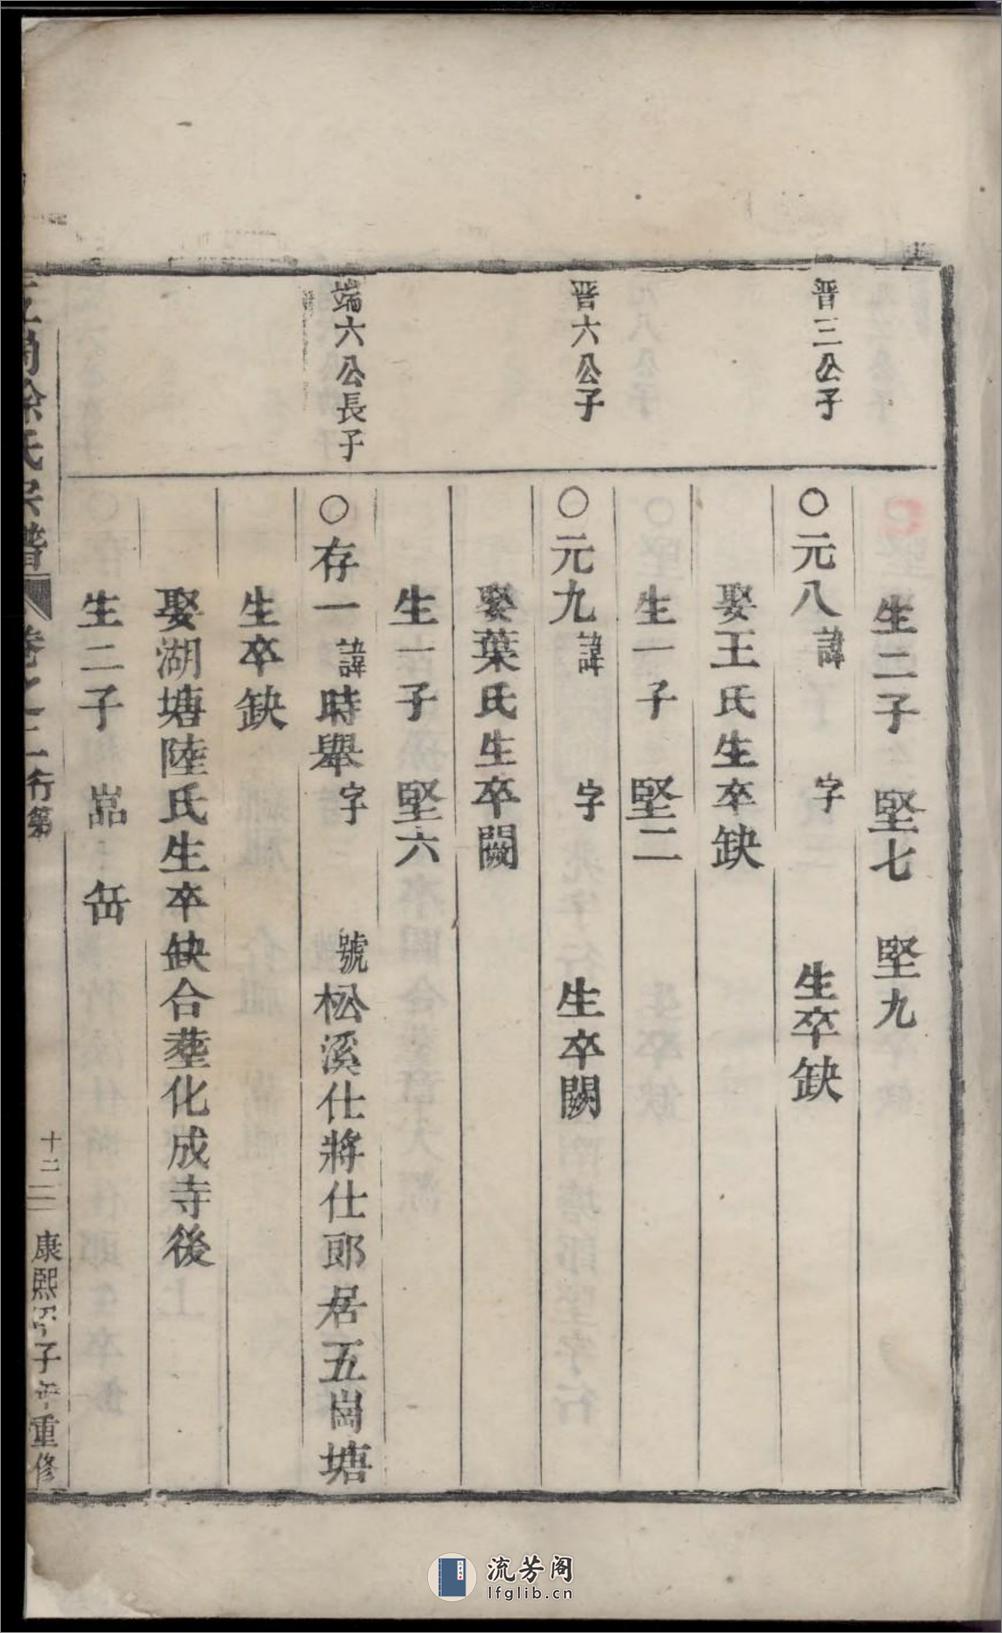 生二子 堅七 堅九
晋三公子
○元八 諱 字 生卒缺
娶王氏生卒缺
生一子 堅二
晋六公子
○元九 諱 字 生卒闕
娶葉氏生卒闕
生一子 堅六
端六公長子
○存一 諱時舉 字 號松溪仕將仕郎居五崗塘
生卒缺
娶湖塘陸氏生卒缺合塟化成寺後
生二子 嵓 缶
徐氏宗譜 卷之二 行第 十二 康熙 子年重修
流芳阁
lfglib.cn